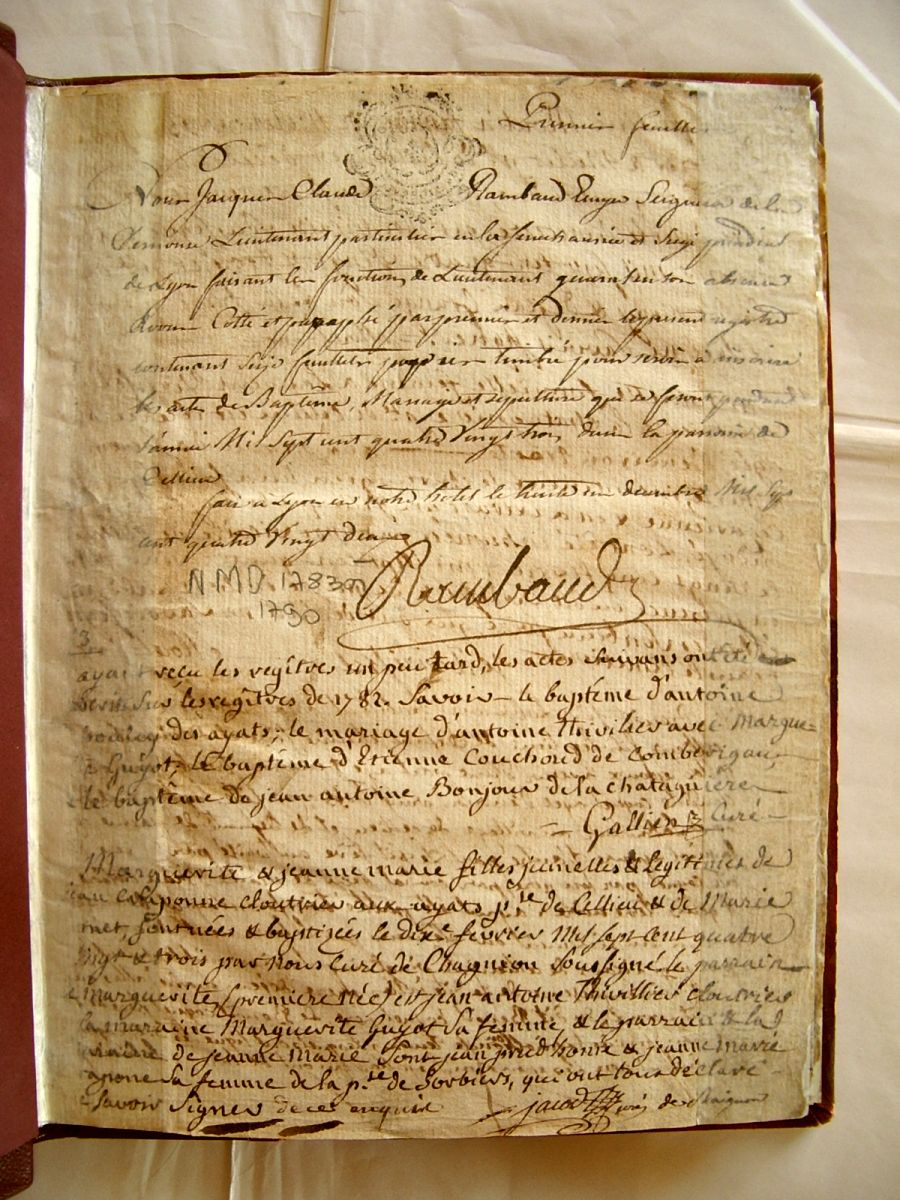 Premier feuillet
Nous Jacques Claude Rambaud Ecuyer Seigneur de la
Lieutenant particulier en la senechaussée et siege presidial
de Lyon faisant les fonctions de Lieutenant general en son absence
Avons Cotté et paraphé par premier et dernier le present registre
contenant Seize feuillets papier timbré pour servir a inscrire
les actes de Baptême, Mariage et sepulture qui se feront pendant
l'année Mil Sept cent quatre Vingt trois dans la paroisse de
Cellieu
fait a Lyon en notre hotel le trente un decembre Mil Sept
cent quatre Vingt deux
Rambaud
NMD 1783 a
1790
3
ayant reçu les regitres un peu tard, les actes suivans ont été
sur les regitres de 1782. Savoir le baptême d'antoine
des ayats; le mariage d'antoine thivilier avec Margue-
Guyot, le baptême d'Etienne Couchoud de Combe
& le baptême de jean antoine Bonjour de la chatagniere
Gallien Curé
Marguerite & jeanne marie filles jumelles & legitimes de
jean Claponne cloutrier aux ayats p.sse de Cellieu & de Marie
sont nées & baptisées le dix.e fevrier Mil sept cent quatre
vingt & trois par nous curé de Chagnion soussigné le parrain
de Marguerite (premiere née) est jean antoine Thivillier cloutrier
la maraine Marguerite Guyot sa femme, & le parrain & la
maraine de jeanne Marie sont jean prudhomme & jeanne marie
aponne sa femme de la p.sse de Sorbiers, qui ont tous déclaré
ne savoir signer de ce enquis curé de Chaignon